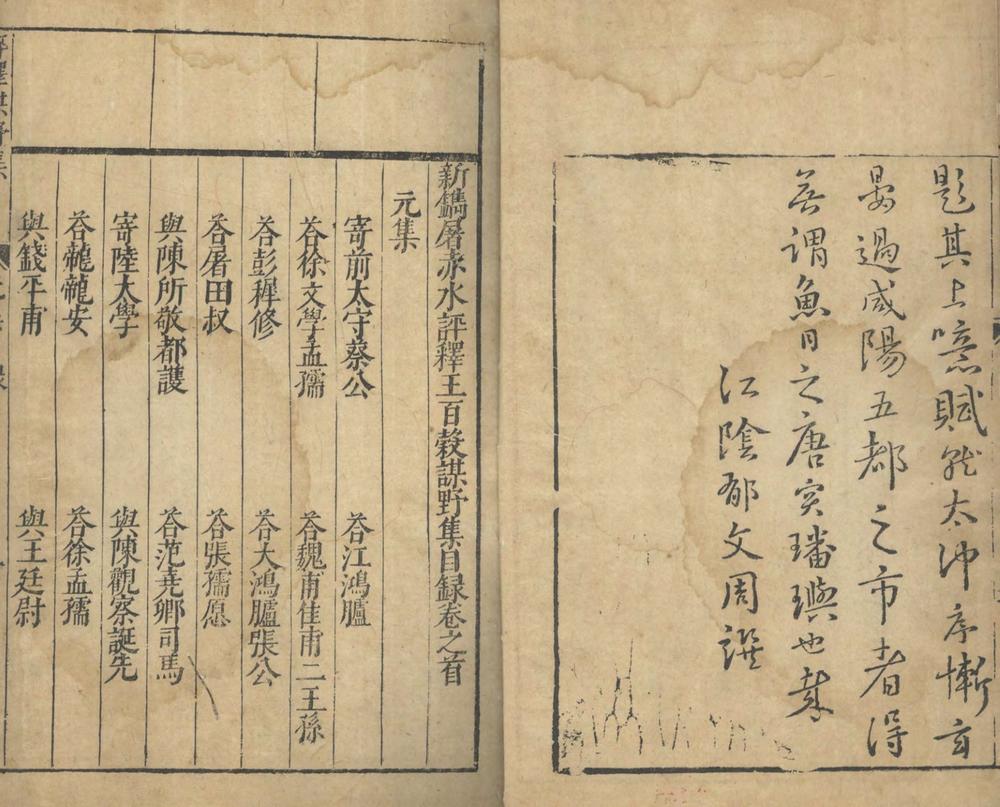 題其上噫賦就太冲序慚玄
晏過咸陽五都之市者得
無謂魚目之唐突璠璵也
江陰郁文周譔
新鐫屠赤水評釋王百穀謀野集目録卷之首
元集
寄前太守蔡公
荅江鴻臚
荅徐文學孟孺
荅魏甫佳甫二王孫
荅彭穉修
荅大鴻臚張公
荅屠田叔
荅張孺愿
與陳所敬都護
荅范堯卿司馬
寄陸大學
與陳觀察誕先
荅龍龍安
荅徐孟孺
與錢平甫
與王廷尉